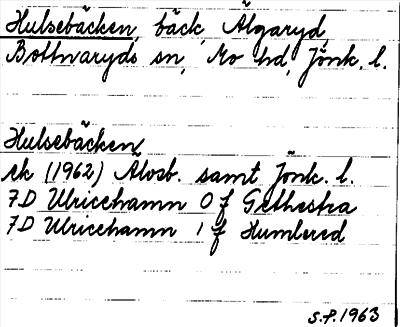 Hulsebäcken, bäck, Älgaryd,
Bottnaryds sn, Mo hd, Jönk. l.
Hulsebäcken
ek (1962) Älvsb. samt Jönk. l.
7D Ulricehamn 0 f Grthestra
7D Ulricehamn 1 f Humlered
S.P. 1963